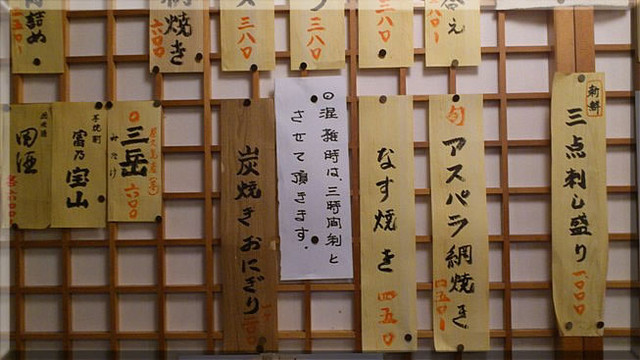 詰め
網焼き
六〇〇
三八〇
三八〇
三八〇
新鮮
三点刺し盛り
一〇〇〇
旬
アスパラ網焼き
四五〇
なす焼き
四五〇
◎混雑時は、三時間制と
させて頂きます。
炭焼きおにぎり
三岳
みたけ
六〇〇
芋焼酎
富乃宝山
田酒